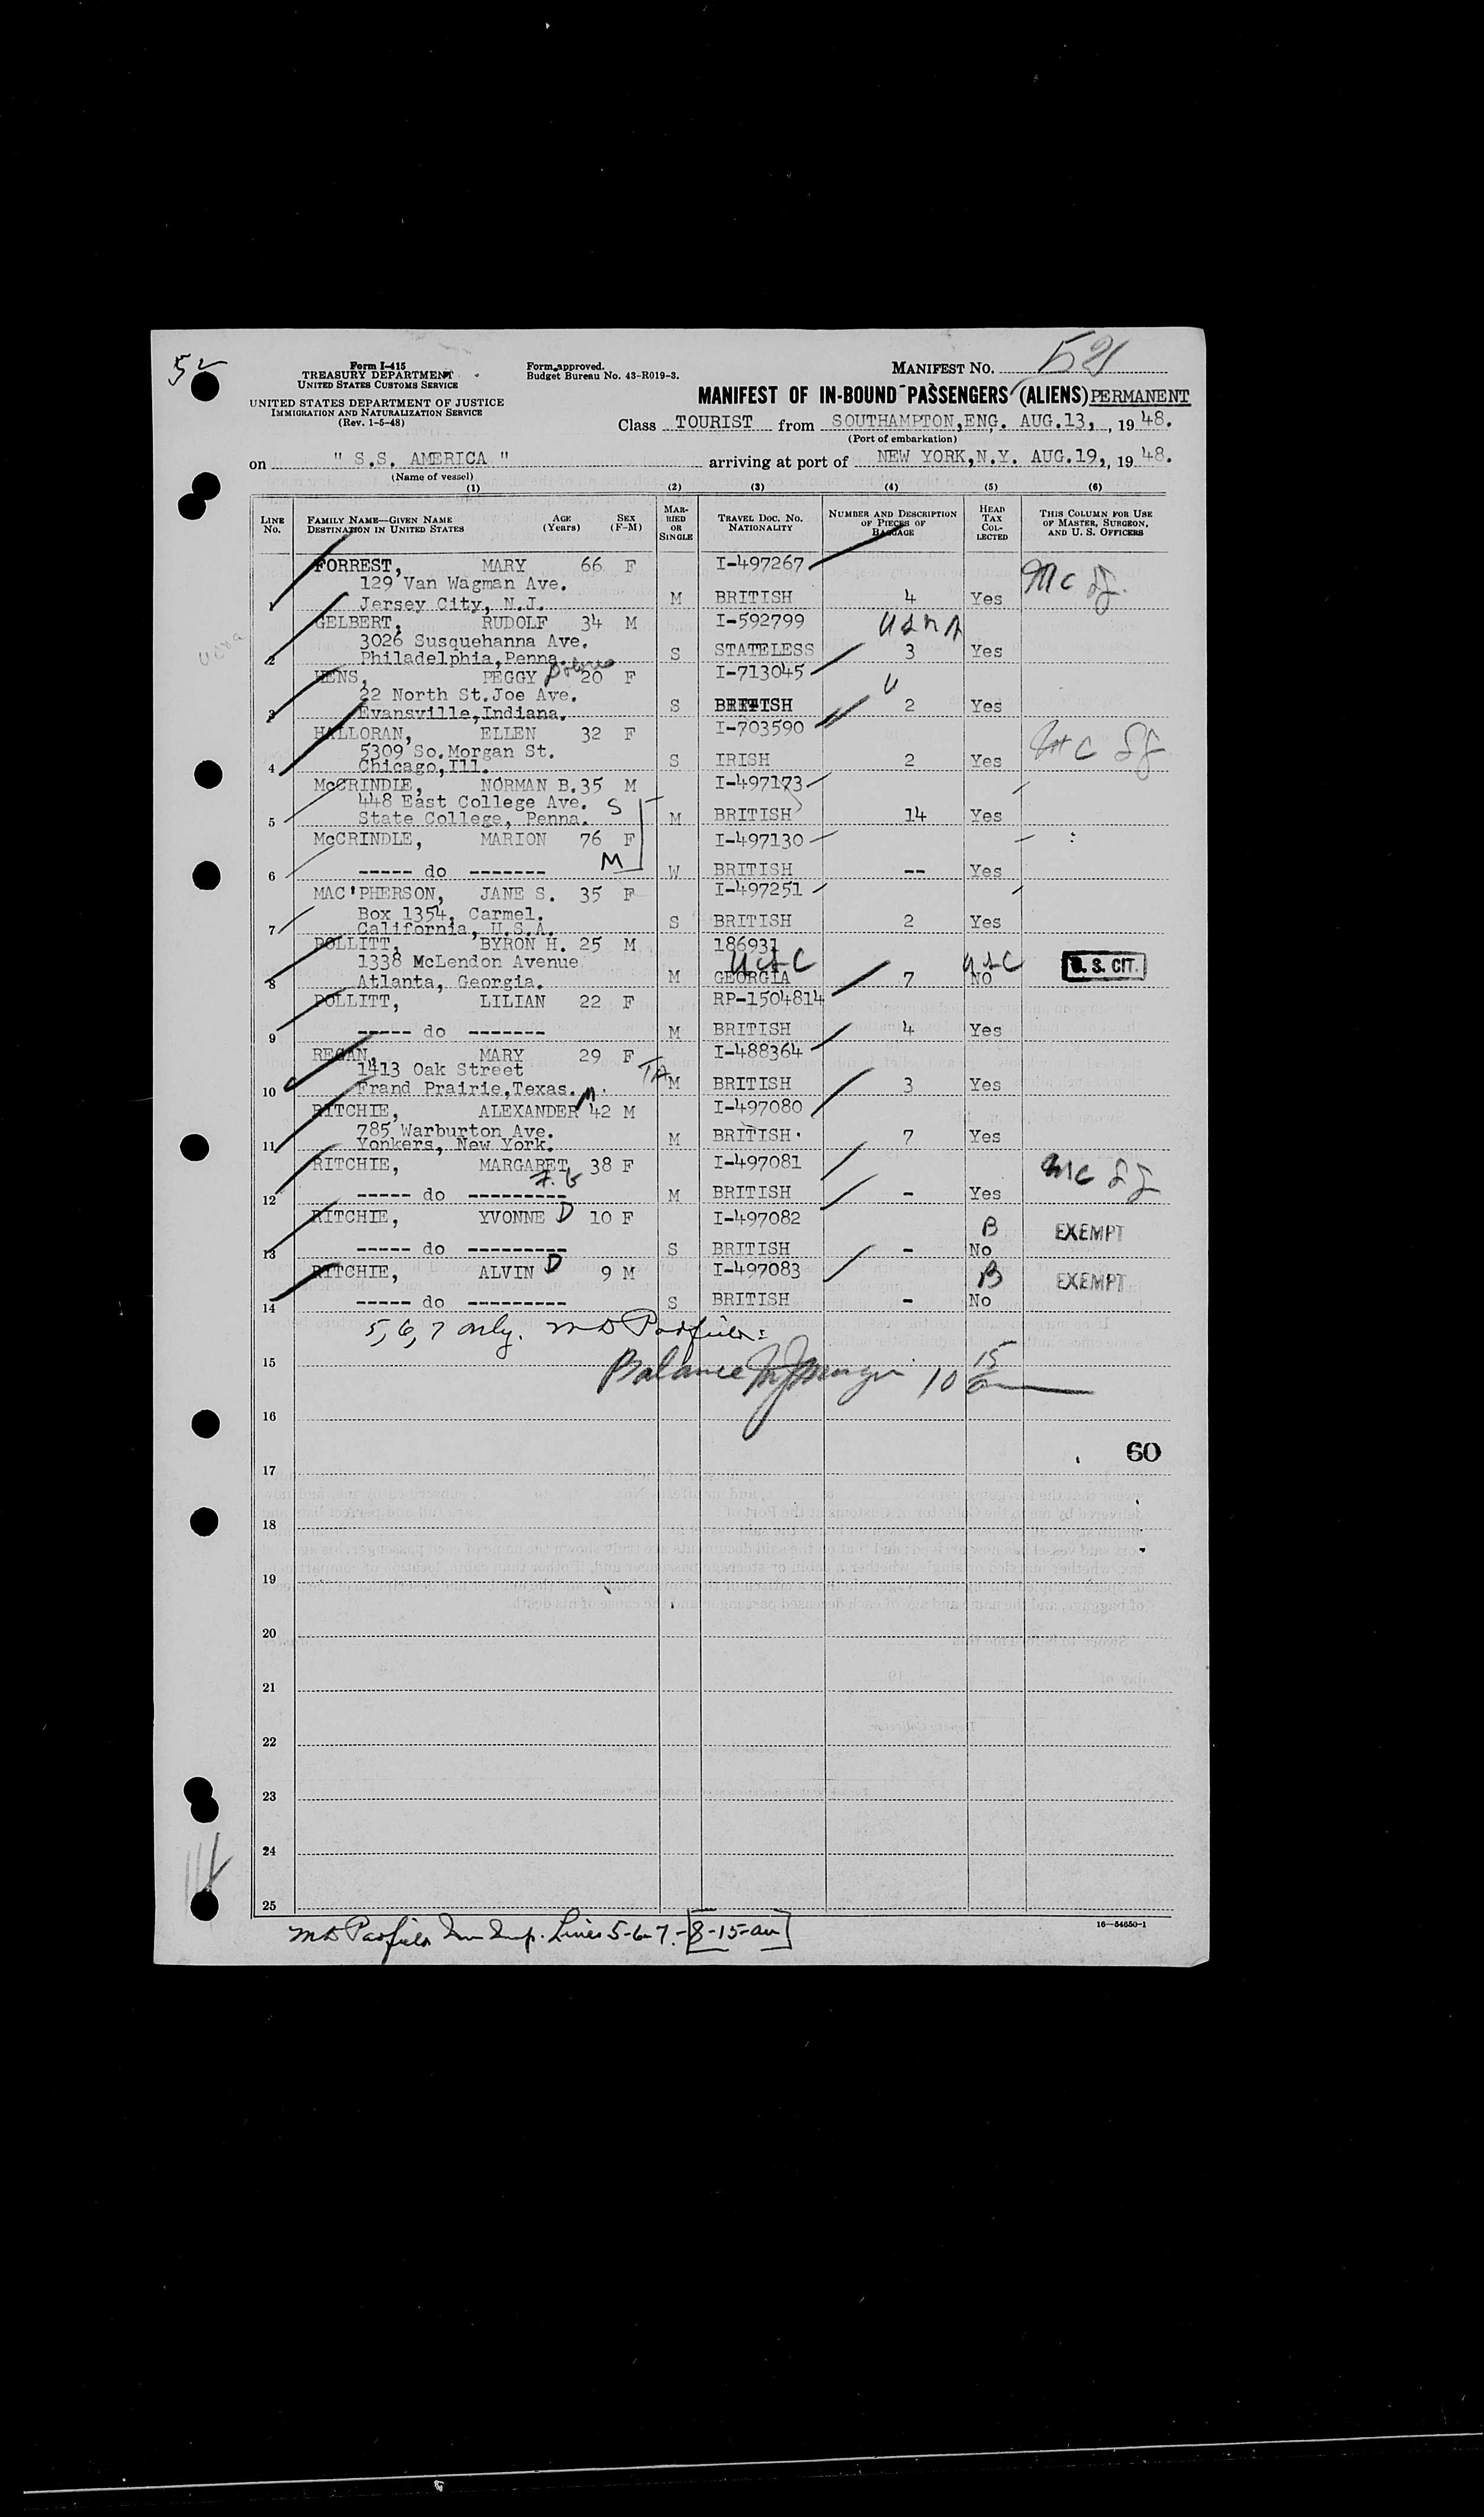 52
Form I-415
TREASURY DEPARTMENT
UNITED STATES CUSTOMS SERVICE
UNITED STATES DEPARTMENT OF JUSTICE
IMMIGRATION AND NATURALIZATION SERVICE
(Rev. 1-5-48)
Form approved.
Budget Bureau No. 43-R019-3.
MANIFEST No. 52
MANIFEST OF IN-BOUND PASSENGERS (ALIENS) PERMANENT
Class TOURIST from SOUTHAMPTON,ENG. AUG.13, , 19 48.
(Port of embarkation)
on " S.S. AMERICA " arriving at port of NEW YORK,N.Y. AUG.19,, 19 48.
(Name of vessel)
(1) (2) (3) (4) (5) (6)
LINE No. FAMILY NAME—GIVEN NAME DESTINATION IN UNITED STATES AGE (Years) SEX (F-M) MARRIED OR SINGLE TRAVEL DOC. No. NATIONALITY NUMBER AND DESCRIPTION OF PIECES OF BAGGAGE HEAD TAX COLLECTED THIS COLUMN FOR USE OF MASTER, SURGEON, AND U. S. OFFICERS
FORREST, MARY 66 F I-497267
129 Van Wagman Ave.
1 Jersey City, N.J. M BRITISH 4 Yes
GELBERT, RUDOLF 34 M I-592799
3026 Susquehanna Ave.
2 Philadelphia,Penna. S STATELESS 3 Yes
HENS, PEGGY 20 F I-713045
22 North St.Joe Ave.
3 Evansville,Indiana. S BRITISH 2 Yes
HALLORAN, ELLEN 32 F I-703590
5309 So.Morgan St.
4 Chicago,Ill. S IRISH 2 Yes
McCRINDLE, NORMAN B. 35 M I-497173
448 East College Ave. S
5 State College, Penna. M BRITISH 14 Yes
McCRINDLE, MARION 76 F I-497130
M
6 ----- do ------- W BRITISH -- Yes
MAC'PHERSON, JANE S. 35 F I-497251
Box 1354, Carmel.
7 California, U.S.A. S BRITISH 2 Yes
POLLITT, BYRON H. 25 M 186931
1338 McLendon Avenue USC USC U. S. CIT.
8 Atlanta, Georgia. M GEORGIA 7 No
POLLITT, LILIAN 22 F RP-1504814
9 ----- do ------- M BRITISH 4 Yes
REGAN, MARY 29 F I-488364
1413 Oak Street
10 Frand Prairie,Texas. M BRITISH 3 Yes
RITCHIE, ALEXANDER M. 42 M I-497080
785 Warburton Ave.
11 Yonkers, New York. M BRITISH 7 Yes
RITCHIE, MARGARET 38 F I-497081
12 ----- do --------- M BRITISH - Yes
RITCHIE, YVONNE D 10 F I-497082 B EXEMPT
13 ----- do --------- S BRITISH - No
RITCHIE, ALVIN D 9 M I-497083 B EXEMPT
14 ----- do --------- S BRITISH - No
5, 6, 7 only. MD Padfield
15 Balance 10 15
16
60
17
18
19
20
21
22
23
24
25
16—54650-1
MD Padfield Imm Insp. Lines 5-6-7.- 8-15-am